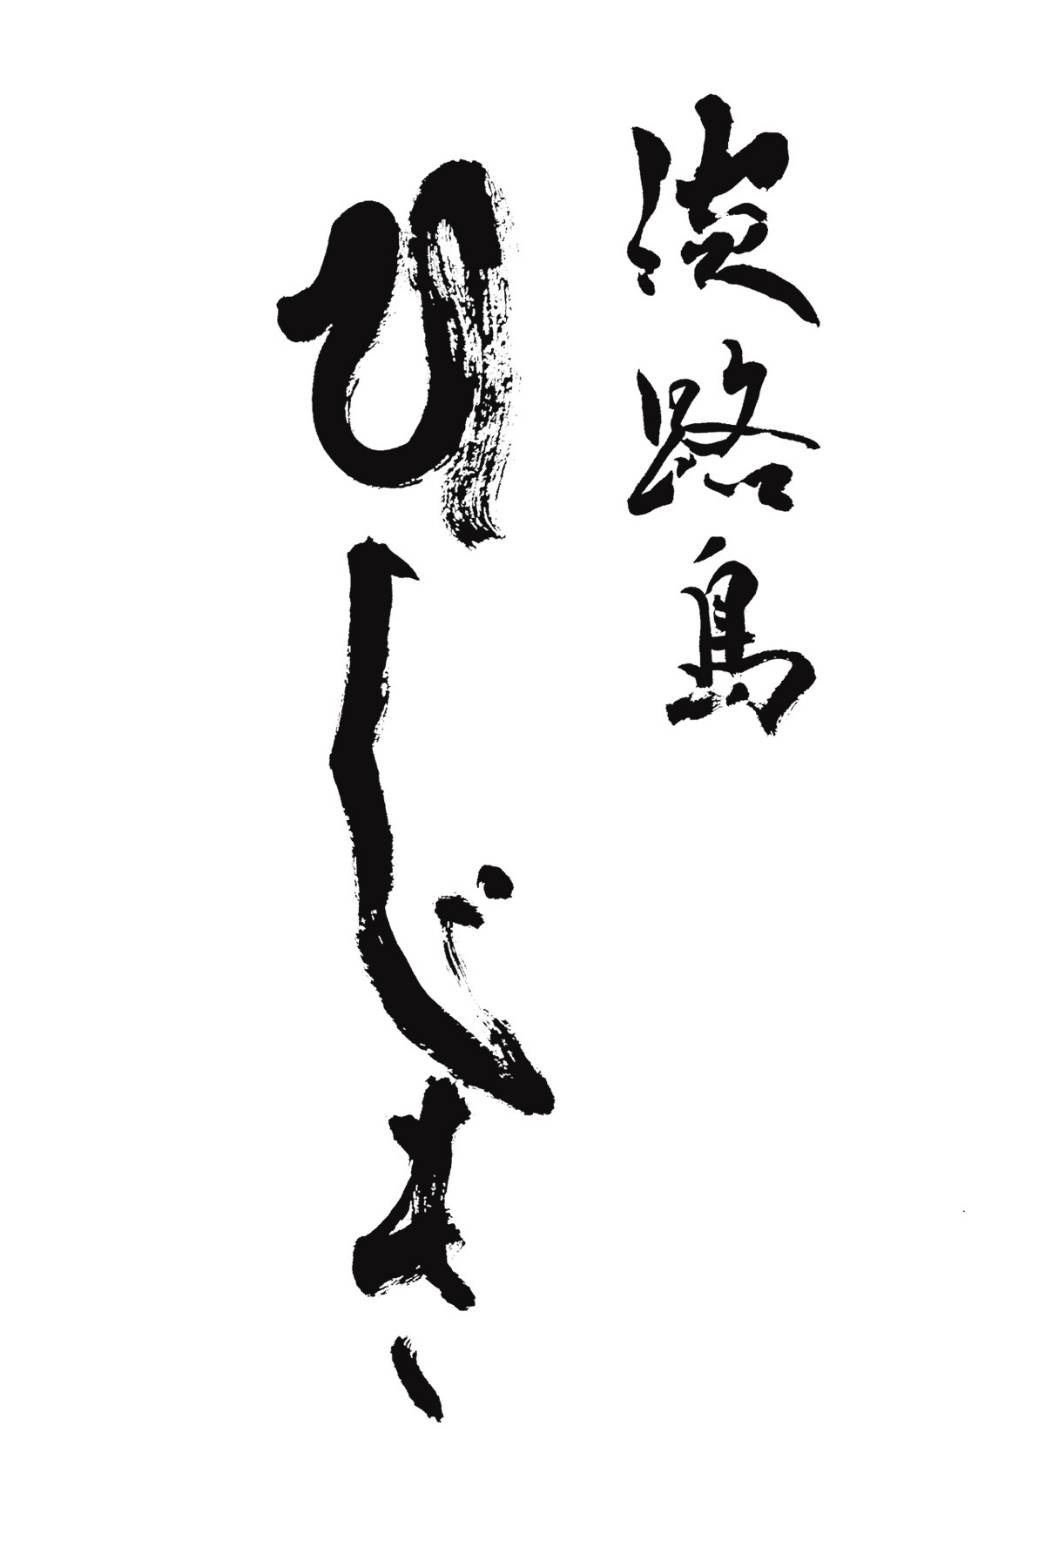 淡路島
ひじき